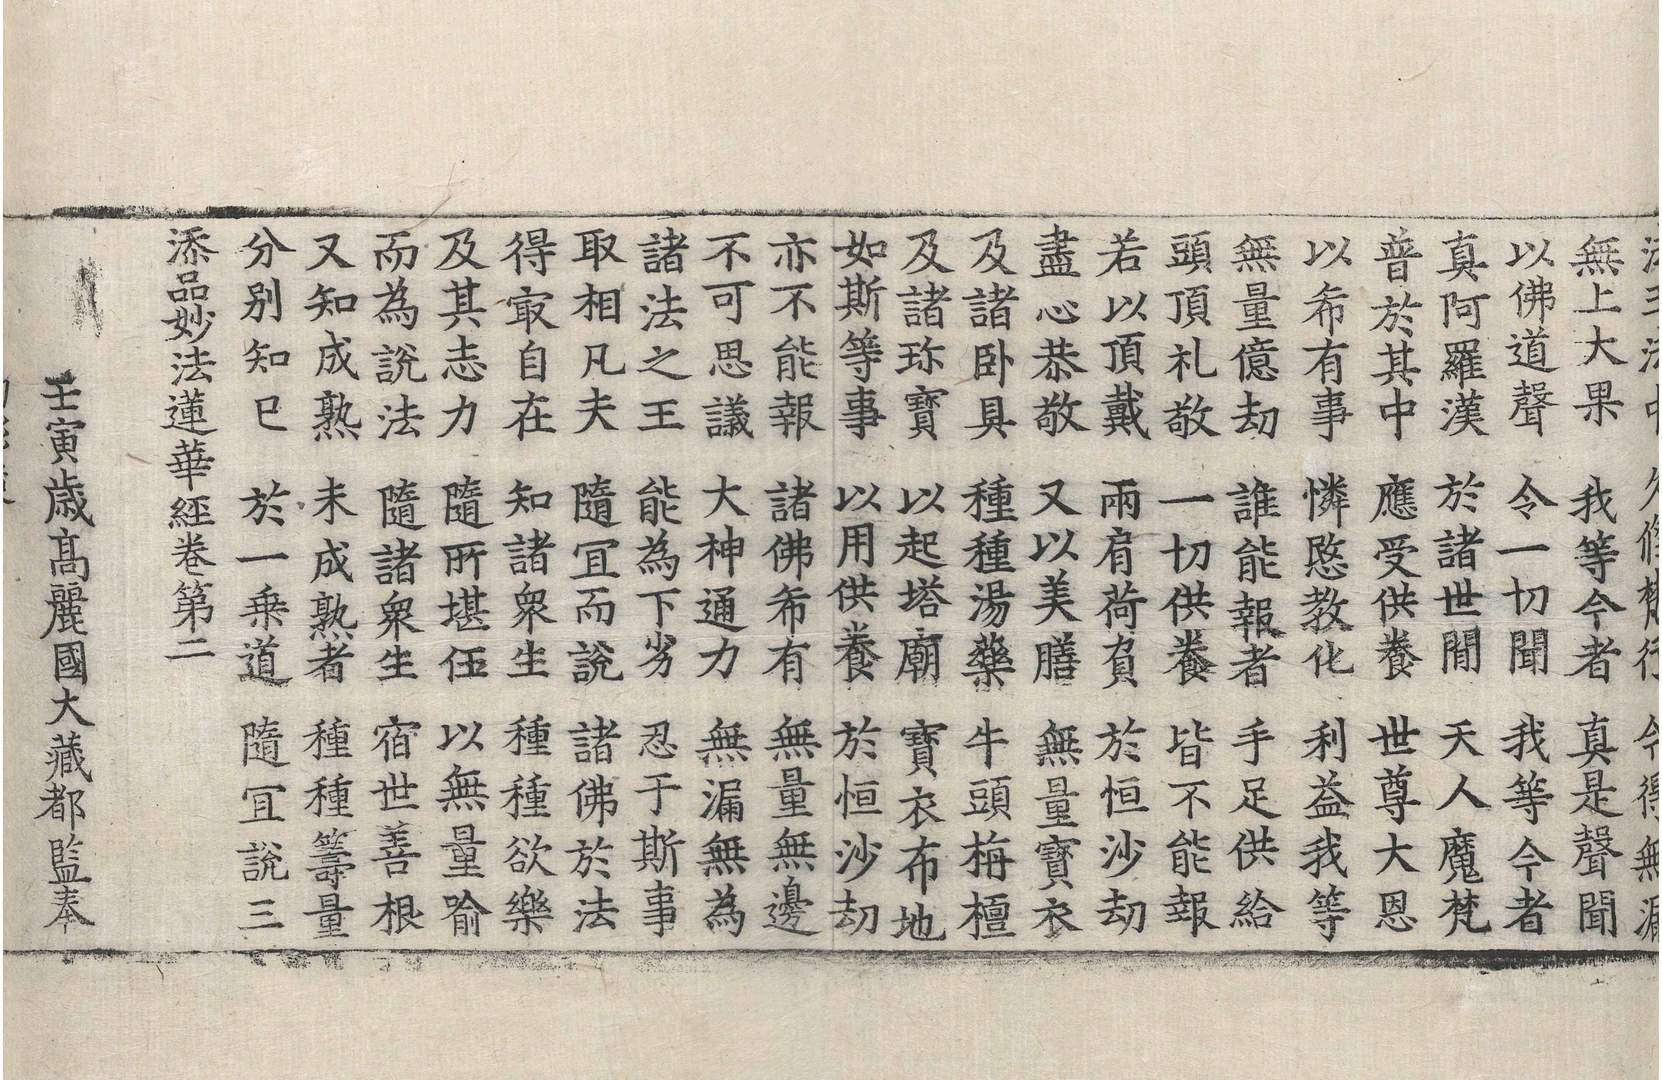 法王法中 久修梵行 今得無漏
無上大果 我等今者 真是聲聞
以佛道聲 令一切聞 我等今者
真阿羅漢 於諸世間 天人魔梵
普於其中 應受供養 世尊大恩
以希有事 憐愍教化 利益我等
無量億劫 誰能報者 手足供給
頭頂礼敬 一切供養 皆不能報
若以頂戴 兩肩荷負 於恒沙劫
盡心恭敬 又以美膳 無量寶衣
及諸卧具 種種湯藥 牛頭栴檀
及諸珎寶 以起塔廟 寶衣布地
如斯等事 以用供養 於恒沙劫
亦不能報 諸佛希有 無量無邊
不可思議 大神通力 無漏無為
諸法之王 能為下劣 忍于斯事
取相凡夫 隨冝而說 諸佛於法
得㝡自在 知諸衆生 種種欲樂
及其志力 隨所堪任 以無量喻
而為說法 隨諸衆生 宿世善根
又知成熟 未成熟者 種種籌量
分別知已 於一乗道 隨冝說三
添品妙法蓮華經卷第二
壬寅歳髙麗國大藏都監奉